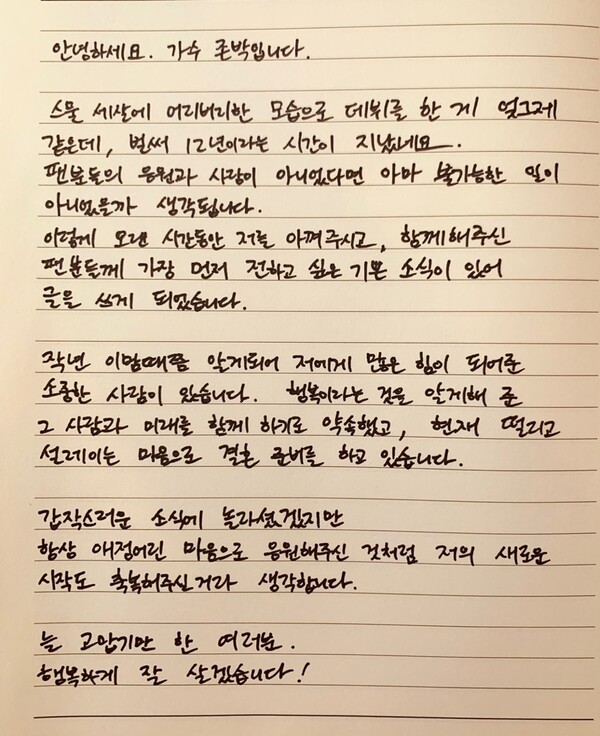 안녕하세요. 가수 존박입니다.
스물 세살에 어리버리한 모습으로 데뷔를 한 게 엊그제
같은데, 벌써 12년이라는 시간이 지났네요.
팬분들의 응원과 사랑이 아니었다면 아마 불가능한 일이
아니었을까 생각됩니다.
이렇게 오랜 시간동안 저를 아껴주시고, 함께해주신
팬분들께 가장 먼저 전하고 싶은 기쁜 소식이 있어
글을 쓰게 되었습니다.
작년 이맘때쯤 알게되어 저에게 많은 힘이 되어준
소중한 사람이 있습니다. 행복이라는 것을 알게해 준
그 사람과 미래를 함께 하기로 약속했고, 현재 떨리고
설레이는 마음으로 결혼 준비를 하고 있습니다.
갑작스러운 소식에 놀라셨겠지만
항상 애정어린 마음으로 응원해주신 것처럼 저의 새로운
시작도 축복해주실거라 생각합니다.
늘 고맙기만 한 여러분.
행복하게 잘 살겠습니다!